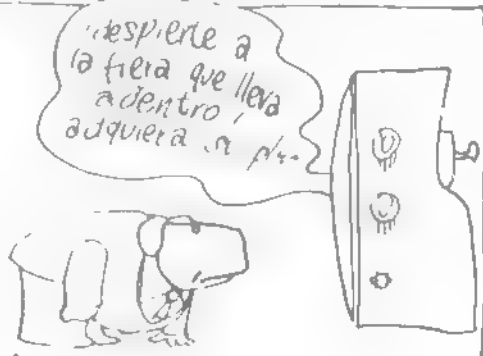 despierte a
la fiera que lleva
adentro,
adquiera